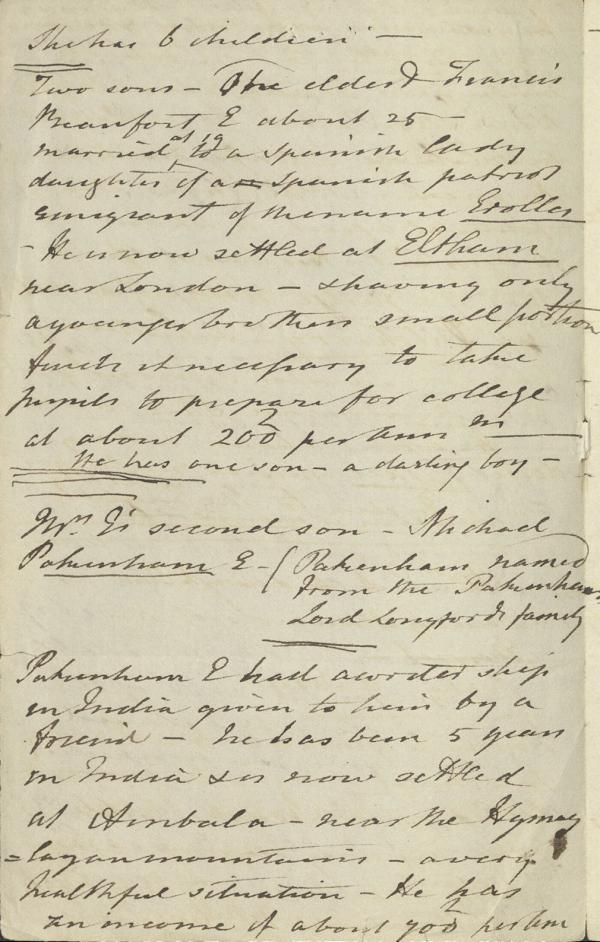 She has 6 children —
Two sons — The eldest Francis
Beaufort E about 25 —
married at 19 to a Spanish lady
daughter of a Spanish patriot
emigrant of the name Erolles
– He is now settled at Eltham
near London – & having only
a younger brothers small portion
finds it necessary to take
pupils to prepare for college
at about 200£ per ann m —
He has one son – a darling boy –
Mrs E's second son – Michael
Pakenham E – (Pakenham named
from the Pakenhams
Lord Longford's family
Pakenham E had a writer ship
in India given to him by a
friend – he has been 5 years
in India & is now settled
at Ambala – near the Hymay
=layan mountains – a very
healthful situation – He has
an income of about 700£ per ann